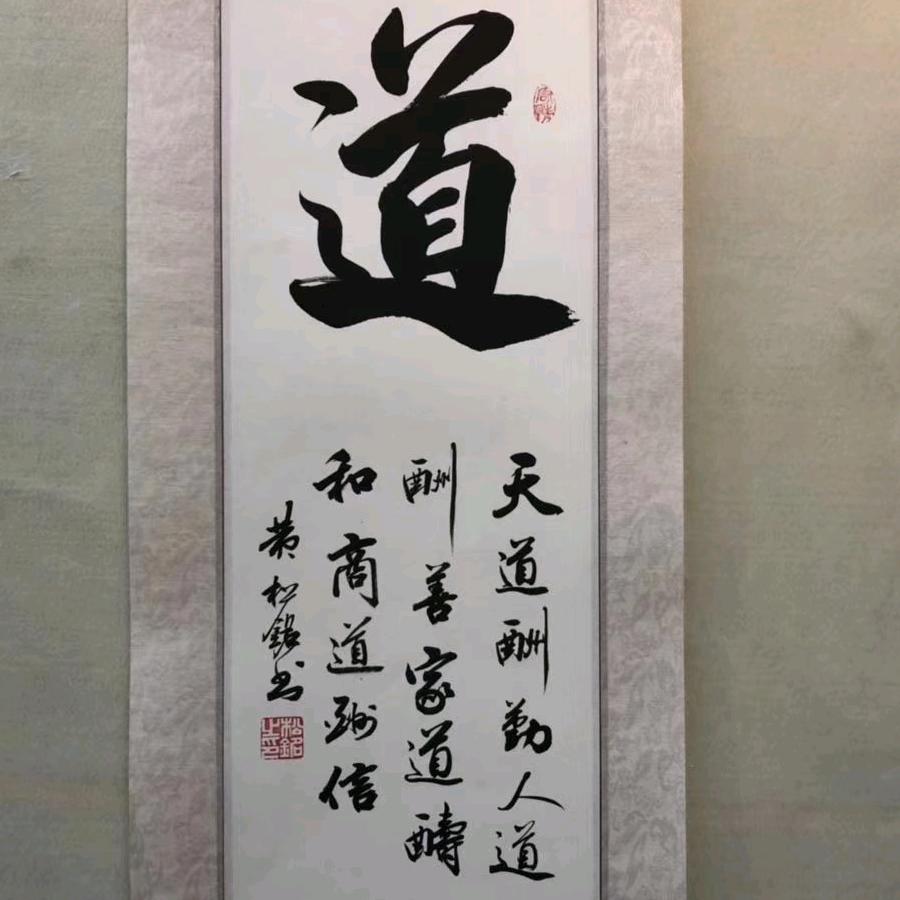 道
天道酬勤人道
酬善家道醻
和商道酬信
黄松铭书
松铭之印